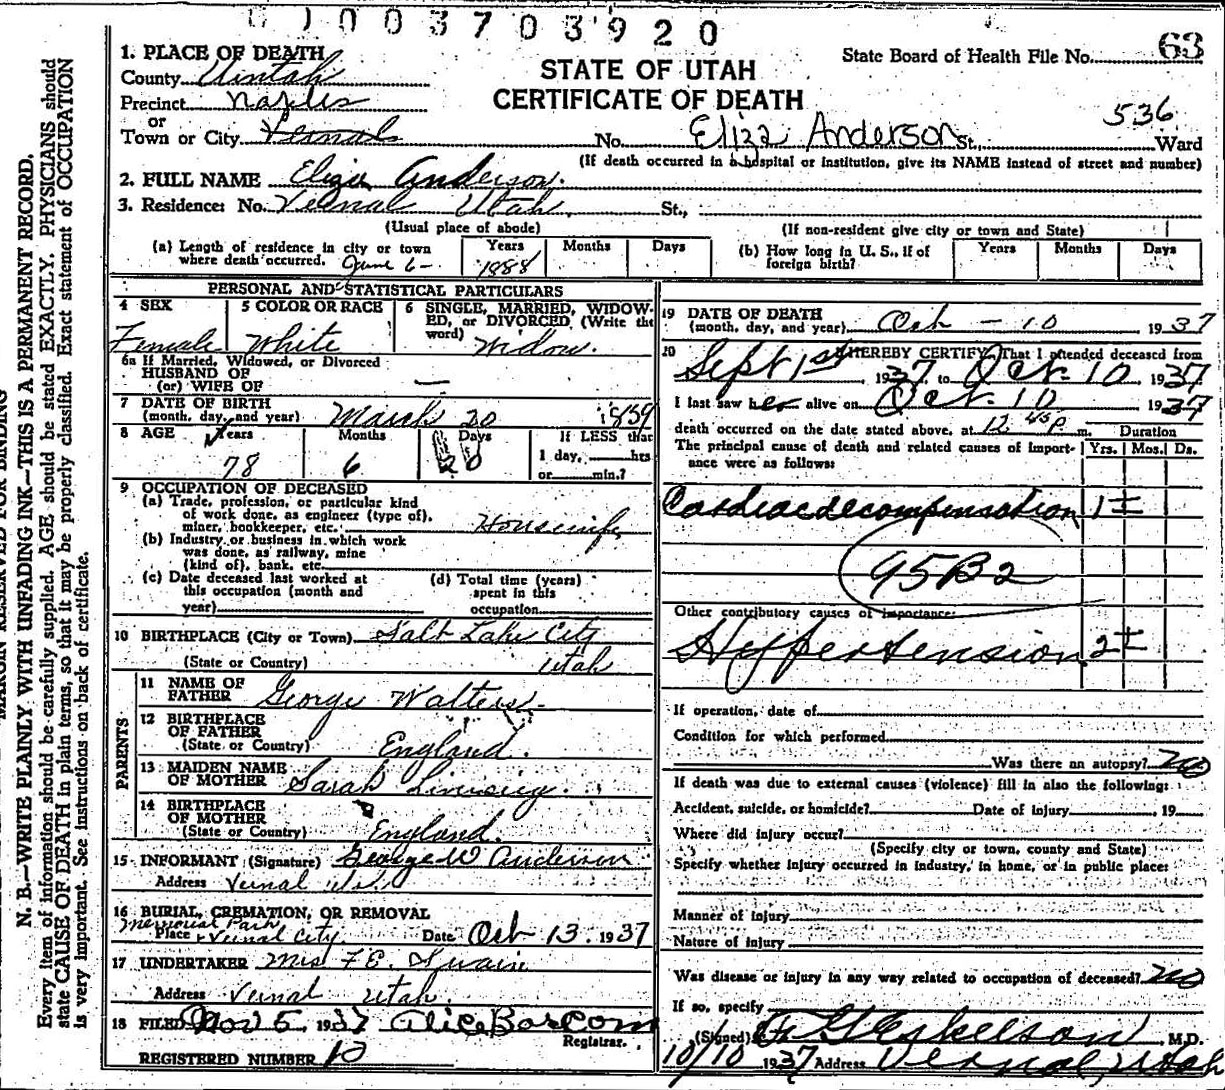 0 1 0 0 3 7 0 3 9 2 0
State Board of Health File No. 63
STATE OF UTAH
CERTIFICATE OF DEATH
1. PLACE OF DEATH
County Uintah
Precinct Naples
or
Town or City Vernal No. Eliza Anderson St., 536 Ward
(If death occurred in a hospital or institution, give its NAME instead of street and number)
2. FULL NAME Eliza Anderson.
3. Residence: No. Vernal Utah. St.,
(Usual place of abode) (If non-resident give city or town and State)
(a) Length of residence in city or town where death occurred. June 6- Years 1888 Months Days
(b) How long in U. S., if of foreign birth? Years Months Days
PERSONAL AND STATISTICAL PARTICULARS
4 SEX Female
5 COLOR OR RACE White
6 SINGLE, MARRIED, WIDOWED, or DIVORCED (Write the word) Widow.
6a If Married, Widowed, or Divorced
HUSBAND OF
(or) WIFE OF —
7 DATE OF BIRTH
(month, day, and year) March 20 1859
8 AGE Years 78 Months 6 Days 20 If LESS than
1 day, hrs
or min.?
9 OCCUPATION OF DECEASED
(a) Trade, profession, or particular kind
of work done, as engineer (type of),
miner, bookkeeper, etc. Housewife
(b) Industry or business in which work
was done, as railway, mine
(kind of), bank, etc.
(c) Date deceased last worked at
this occupation (month and
year)
(d) Total time (years)
spent in this
occupation
10 BIRTHPLACE (City or Town) Salt Lake City
(State or Country) Utah
PARENTS
11 NAME OF
FATHER George Walters
12 BIRTHPLACE
OF FATHER
(State or Country) England.
13 MAIDEN NAME
OF MOTHER Sarah
14 BIRTHPLACE
OF MOTHER
(State or Country) England.
15 INFORMANT (Signature) George W Anderson
Address Vernal Utah
16 BURIAL, CREMATION, OR REMOVAL
Memorial Park
Place Vernal City Date Oct 13 1937
17 UNDERTAKER Mrs F. E. Swain
Address Vernal Utah.
18 FILED Nov 5 1937 Alice Bascom
Registrar.
REGISTERED NUMBER
19 DATE OF DEATH
(month, day, and year) Oct - 10 1937
20 I HEREBY CERTIFY, That I attended deceased from
Sept 1st 1937, to Oct. 10 1937
I last saw her alive on Oct 10 1937
death occurred on the date stated above, at 12 45 P. m. Duration
The principal cause of death and related causes of importance were as follows: Yrs. Mos. Ds.
Cardiac decompensation 1 ±
95B2
Other contributory causes of importance:
Hyppertension 2 ±
If operation, date of
Condition for which performed
Was there an autopsy? no
If death was due to external causes (violence) fill in also the following:
Accident, suicide, or homicide? Date of injury 19
Where did injury occur?
(Specify city or town, county and State)
Specify whether injury occurred in industry, in home, or in public place:
Manner of injury
Nature of injury
Was disease or injury in any way related to occupation of deceased? no
If so, specify
(Signed) Eskelson, M.D.
10/10 1937 Address Vernal, Utah
MARGIN RESERVED FOR BINDING
N. B.—WRITE PLAINLY WITH UNFADING INK—THIS IS A PERMANENT RECORD.
Every item of information should be carefully supplied. AGE should be stated EXACTLY. PHYSICIANS should
state CAUSE OF DEATH in plain terms, so that it may be properly classified. Exact statement of OCCUPATION
is very important. See instructions on back of certificate.